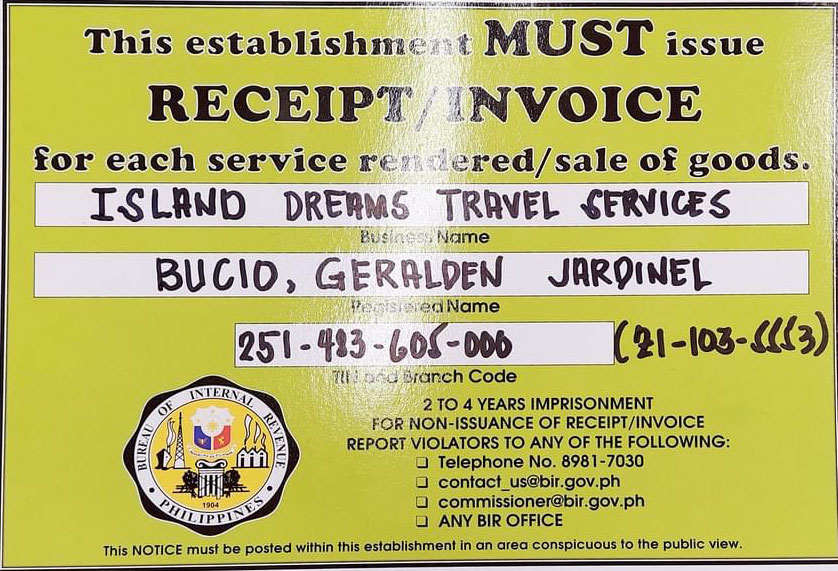 This establishment MUST issue
RECEIPT/INVOICE
for each service rendered/sale of goods.
ISLAND DREAMS TRAVEL SERVICES
Business Name
BUCIO, GERALDEN JARDINEL
Registered Name
251-483-605-000 (21-103-5553)
TIN and Branch Code
BUREAU OF INTERNAL REVENUE
1904
PHILIPPINES
2 TO 4 YEARS IMPRISONMENT
FOR NON-ISSUANCE OF RECEIPT/INVOICE
REPORT VIOLATORS TO ANY OF THE FOLLOWING:
❑ Telephone No. 8981-7030
❑ contact_us@bir.gov.ph
❑ commissioner@bir.gov.ph
❑ ANY BIR OFFICE
This NOTICE must be posted within this establishment in an area conspicuous to the public view.